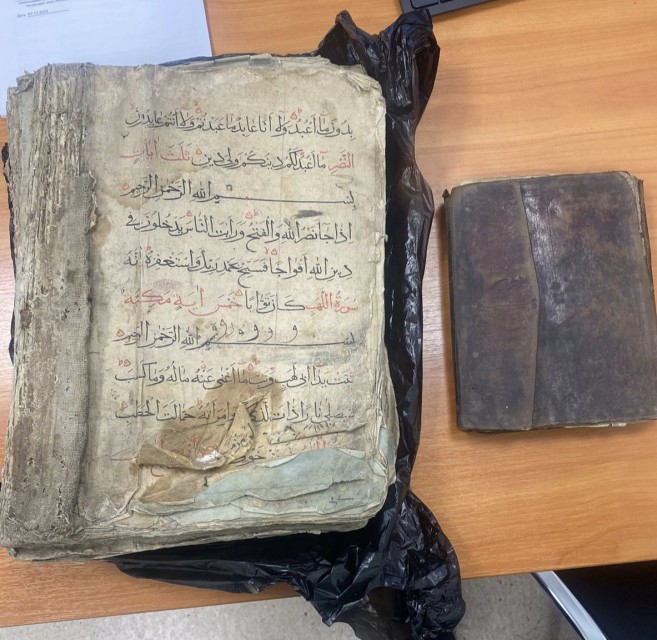 بدون ما اعبد ولا انا عابد ما عبدتم ولا انتم عابدون
ما اعبد لكم دينكم ولي دين ثلث ايات
النصر
بسم الله الرحمن الرحيم
اذا جا نصر الله والفتح ورايت الناس يدخلون في
دين الله افواجا فسبح بحمد ربك واستغفره انه
كان توابا خمس اية مكية
سورة اللهب
بسم الله الرحمن الرحيم
تبت يدا ابي لهب وتب ما اغنى عنه ماله وما كسب
سيصلى نارا ذات وامراته حمالت الحطب